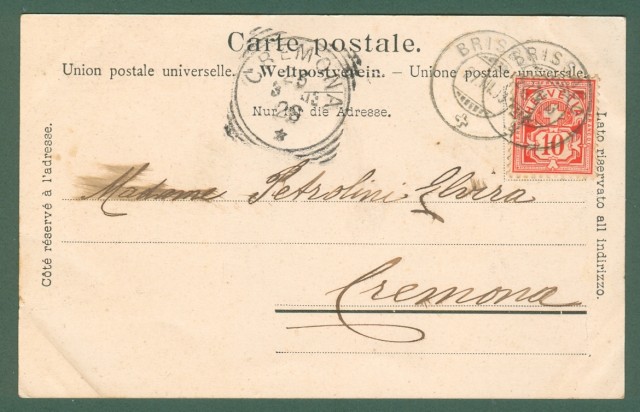 Carte postale.
Union postale universelle. – Weltpostverein. – Unione postale universale.
Nur für die Adresse.
CREMONA
BRISS
BRISS
HELVETIA
10
Côté réservé à l'adresse.
Lato riservato all indirizzo.
Madame Petrolini Elvera
Cremona